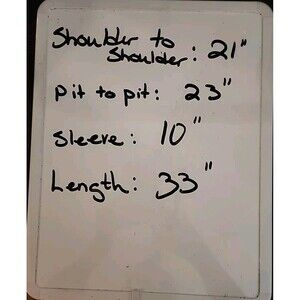 Shoulder to
Shoulder: 21"
pit to pit: 23"
Sleeve: 10"
Length: 33"